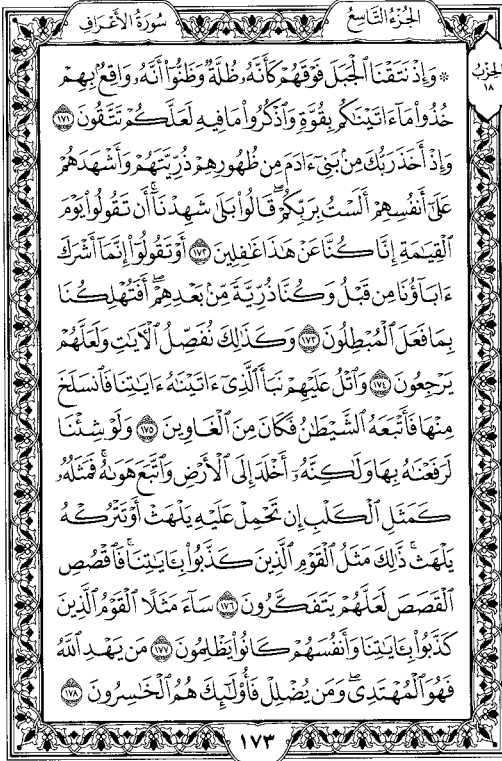 الجزء التاسع
سورة الأعراف
الحزب
١٨
۞ وَإِذْ نَتَقْنَا ٱلْجَبَلَ فَوْقَهُمْ كَأَنَّهُۥ ظُلَّةٌ وَظَنُّوٓا۟ أَنَّهُۥ وَاقِعٌۢ بِهِمْ
خُذُوا۟ مَآ ءَاتَيْنَٰكُم بِقُوَّةٍ وَٱذْكُرُوا۟ مَا فِيهِ لَعَلَّكُمْ تَتَّقُونَ ١٧١
وَإِذْ أَخَذَ رَبُّكَ مِنۢ بَنِىٓ ءَادَمَ مِن ظُهُورِهِمْ ذُرِّيَّتَهُمْ وَأَشْهَدَهُمْ
عَلَىٰٓ أَنفُسِهِمْ أَلَسْتُ بِرَبِّكُمْ ۖ قَالُوا۟ بَلَىٰ شَهِدْنَآ ۛ أَن تَقُولُوا۟ يَوْمَ
ٱلْقِيَٰمَةِ إِنَّا كُنَّا عَنْ هَٰذَا غَٰفِلِينَ ١٧٢ أَوْ تَقُولُوٓا۟ إِنَّمَآ أَشْرَكَ
ءَابَآؤُنَا مِن قَبْلُ وَكُنَّا ذُرِّيَّةً مِّنۢ بَعْدِهِمْ ۖ أَفَتُهْلِكُنَا
بِمَا فَعَلَ ٱلْمُبْطِلُونَ ١٧٣ وَكَذَٰلِكَ نُفَصِّلُ ٱلْءَايَٰتِ وَلَعَلَّهُمْ
يَرْجِعُونَ ١٧٤ وَٱتْلُ عَلَيْهِمْ نَبَأَ ٱلَّذِىٓ ءَاتَيْنَٰهُ ءَايَٰتِنَا فَٱنسَلَخَ
مِنْهَا فَأَتْبَعَهُ ٱلشَّيْطَٰنُ فَكَانَ مِنَ ٱلْغَاوِينَ ١٧٥ وَلَوْ شِئْنَا
لَرَفَعْنَٰهُ بِهَا وَلَٰكِنَّهُۥٓ أَخْلَدَ إِلَى ٱلْأَرْضِ وَٱتَّبَعَ هَوَىٰهُ ۚ فَمَثَلُهُۥ
كَمَثَلِ ٱلْكَلْبِ إِن تَحْمِلْ عَلَيْهِ يَلْهَثْ أَوْ تَتْرُكْهُ
يَلْهَث ۚ ذَّٰلِكَ مَثَلُ ٱلْقَوْمِ ٱلَّذِينَ كَذَّبُوا۟ بِـَٔايَٰتِنَا ۚ فَٱقْصُصِ
ٱلْقَصَصَ لَعَلَّهُمْ يَتَفَكَّرُونَ ١٧٦ سَآءَ مَثَلًا ٱلْقَوْمُ ٱلَّذِينَ
كَذَّبُوا۟ بِـَٔايَٰتِنَا وَأَنفُسَهُمْ كَانُوا۟ يَظْلِمُونَ ١٧٧ مَن يَهْدِ ٱللَّهُ
فَهُوَ ٱلْمُهْتَدِى ۖ وَمَن يُضْلِلْ فَأُو۟لَٰٓئِكَ هُمُ ٱلْخَٰسِرُونَ ١٧٨
١٧٣